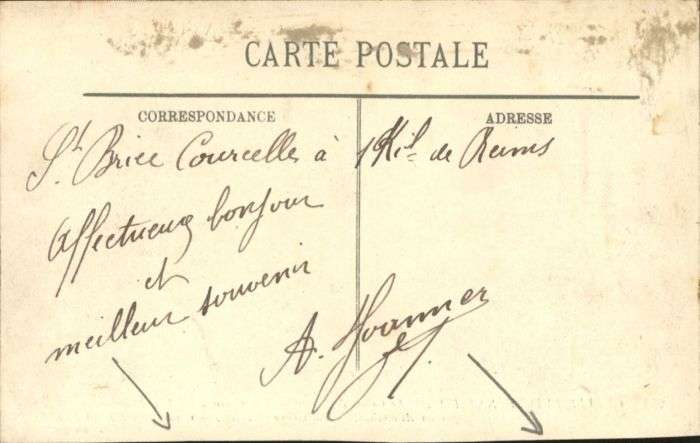 CARTE POSTALE
CORRESPONDANCE
ADRESSE
St Brice Courcelles à 1 Kil. de Reims
Affectueux bonjour
et
meilleur souvenir
A.